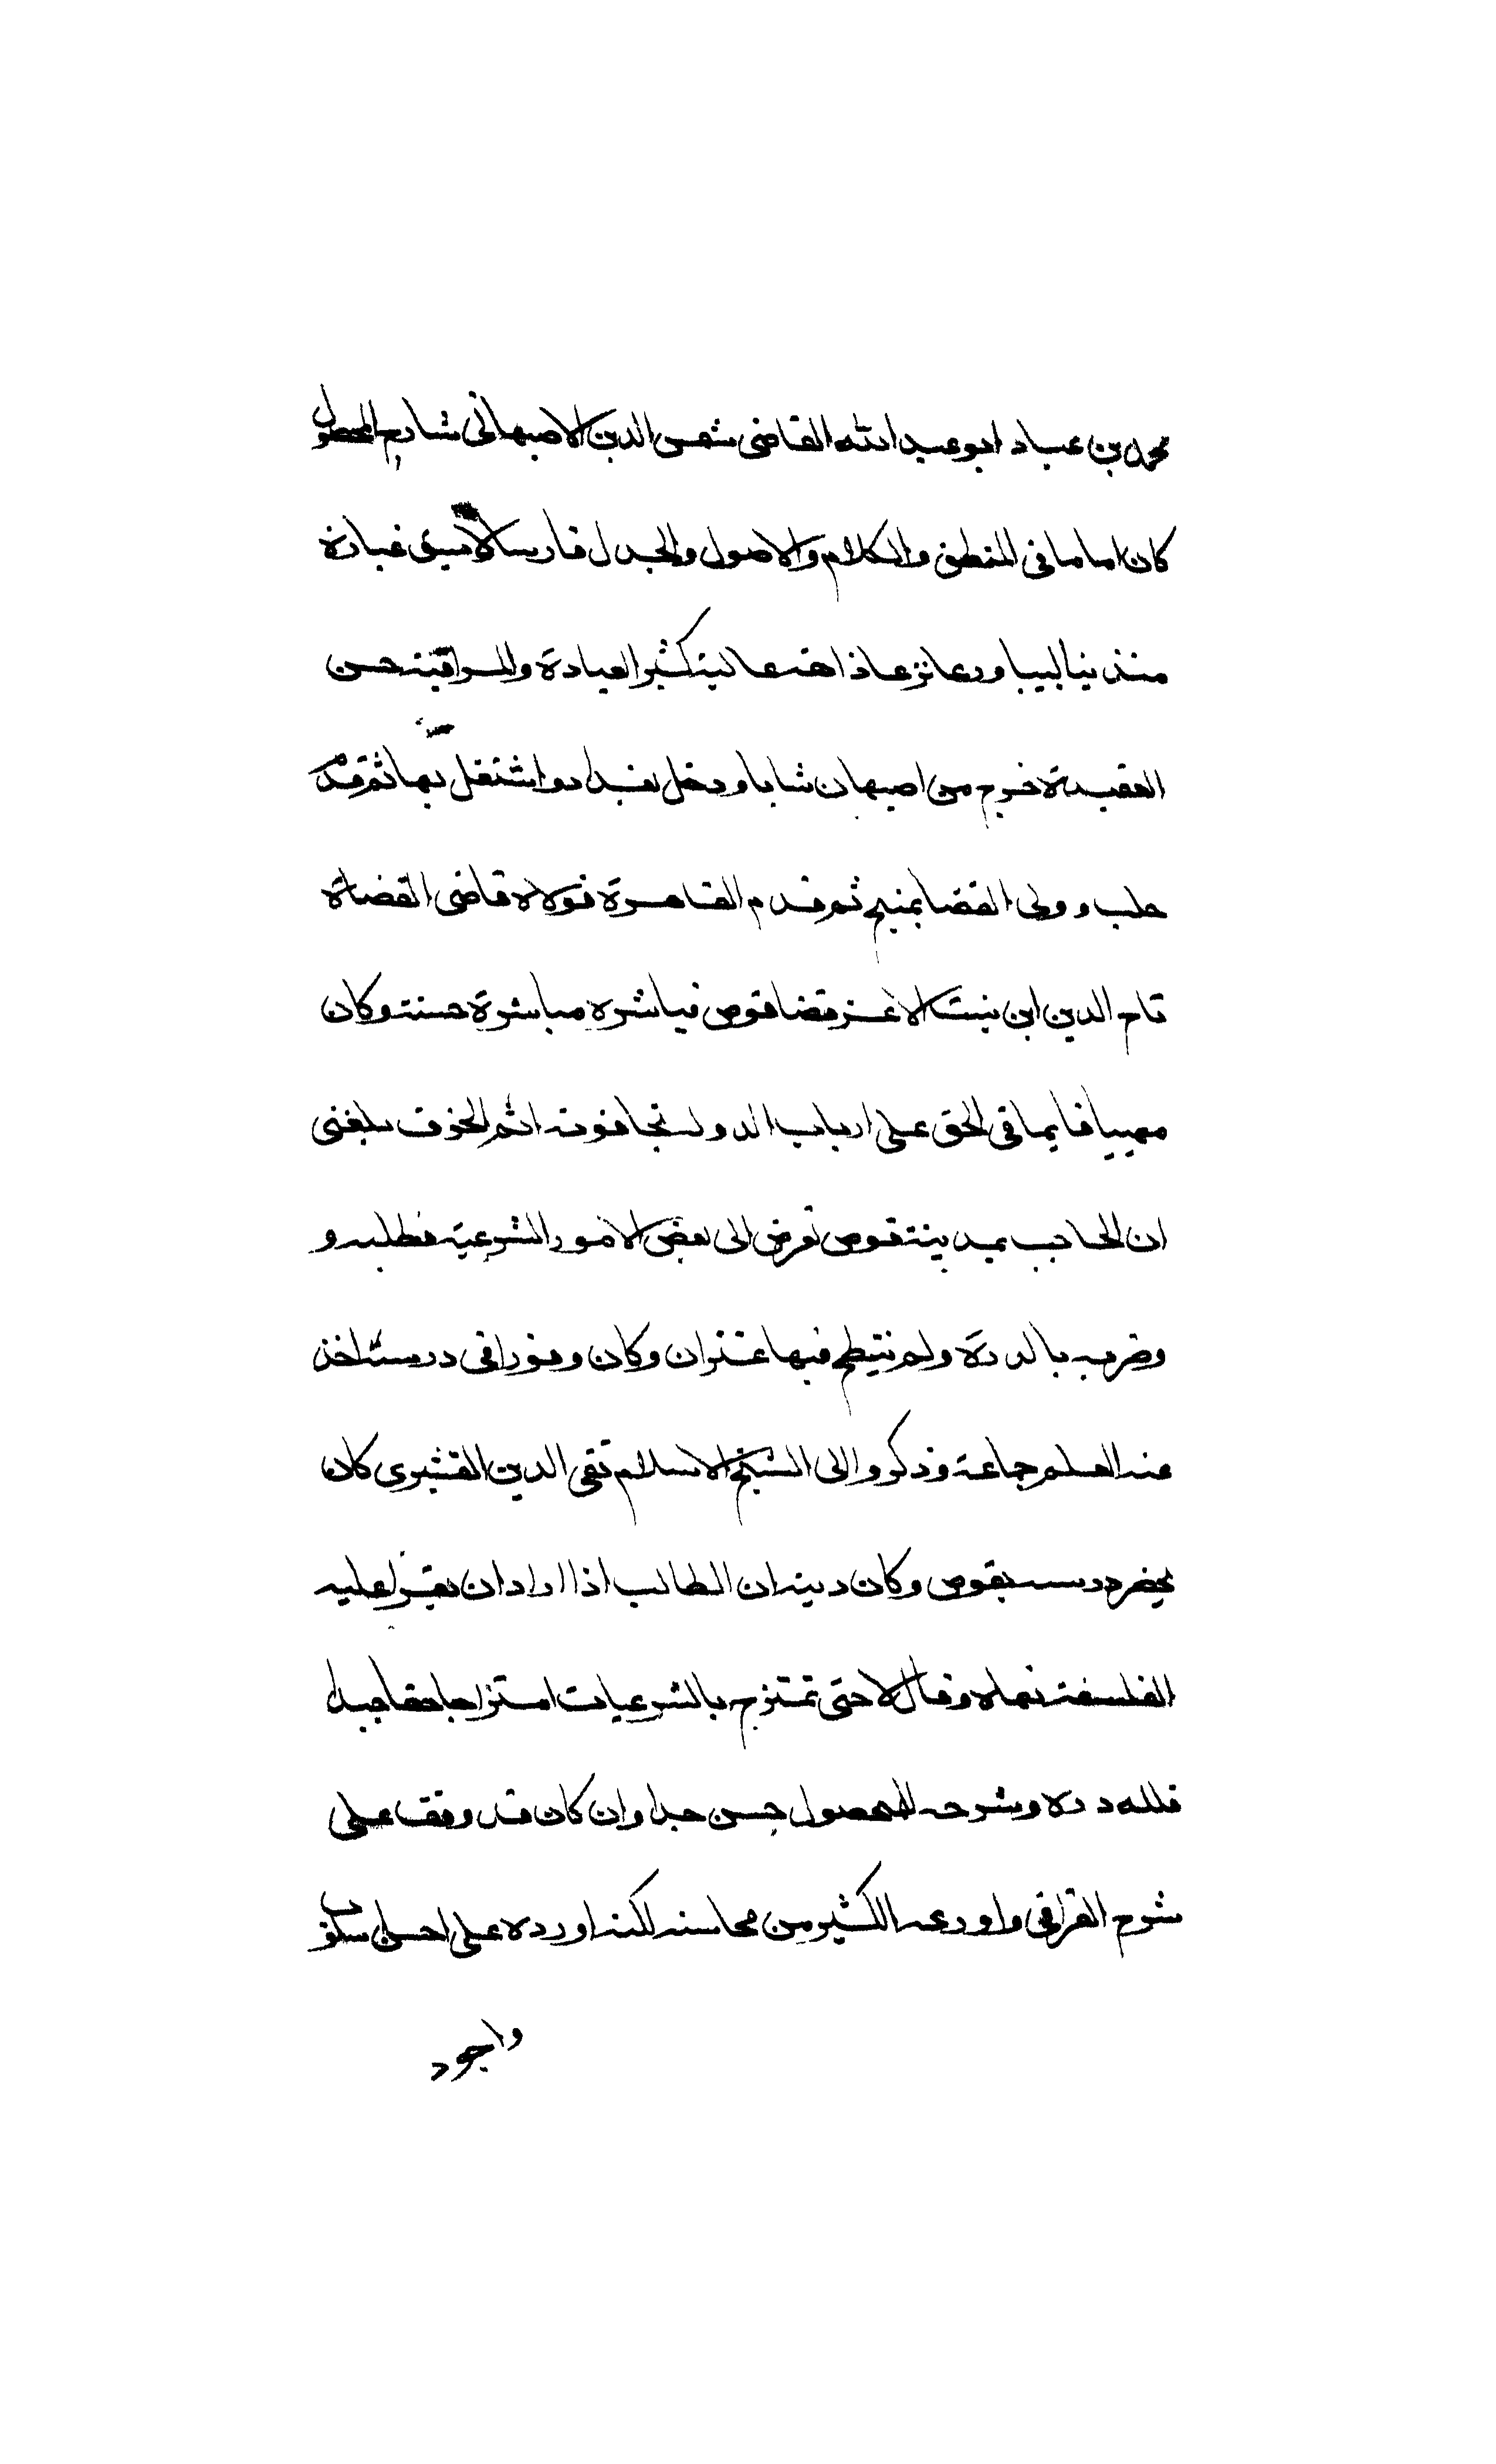 محمد بن عباد ابو عبد الله القاضى شمس الدين الاصبهانى شارح المحصول
كان اماما فى المنطق والكلام والاصول والجدل فارسا لا يشق غباره
متدينا لبيبا ورعا نزها ذا همة عالية كثير العبادة والمراقبة حسن
العقيدة خرج من اصبهان شابا ودخل بغداد واشتغل بها ثم قدم
حلب وولى القضا بمنبج ثم قدم القاهرة فولاه قاضى القضاة
تاج الدين ابن بنت الاعز قضا قوص فباشره مباشرة حسنة وكان
مهيبا قايما فى الحق على ارباب الدولة يخافونه اتم الخوف بلغنى
ان الحاجب بمدينة قوص تعرض الى بعض الامور الشرعية فطلبه و
وضربه بالدرة ولم ينتطح فيها عنزان وكان وقورا فى درسه اخذ
عنه العلم جماعة وذكروا الى الشيخ الاسلام تقى الدين القشيرى كان
يحضر درسه بقوص وكان دينه ان الطالب اذا اراد ان يقرا عليه
الفلسفة نهاه وقال لا حتى تمتزج بالشرعيات امتزاجا جيدا
فلله دره وشرحه للمحصول حسن جدا وان كان قد وقف على
شرح القرافى واودعه الكثير من محاسنه لكنه اورده على احسن اسلوب
واجود